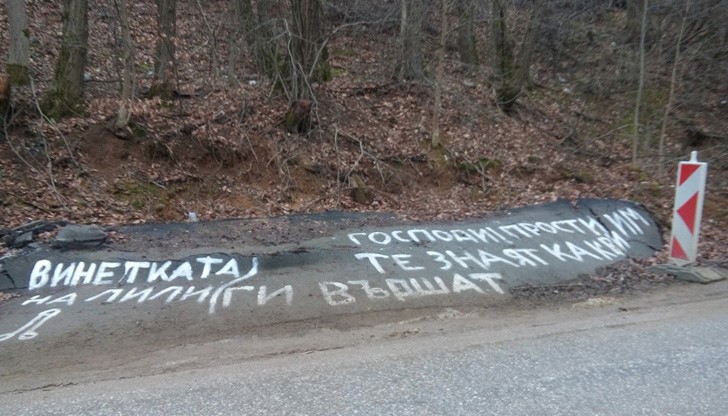 ВИНЕТКАТА
НА ЛИЛИ
ГОСПОДИ ПРОСТИ ИМ
ТЕ ЗНАЯТ КАКВИ
ГИ ВЪРШАТ